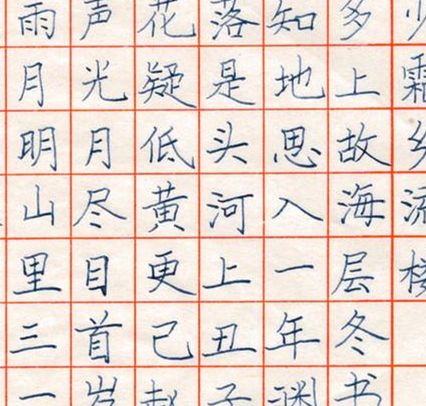 雨声花落知多少
月光疑是地上霜
明月低头思故乡
山尽黄河入海流
里目更上一层楼
三首己丑年冬
一岁赵子渊书